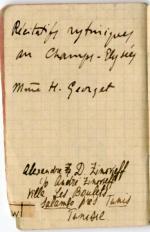 Récitatifs rythmiques
au Champs-Elysées
Mme H. Georget
Alexandre D. Zinovieff
c/o André Zinovieff
Villa Les Boulets
Salambo près Tunis
Tunisie